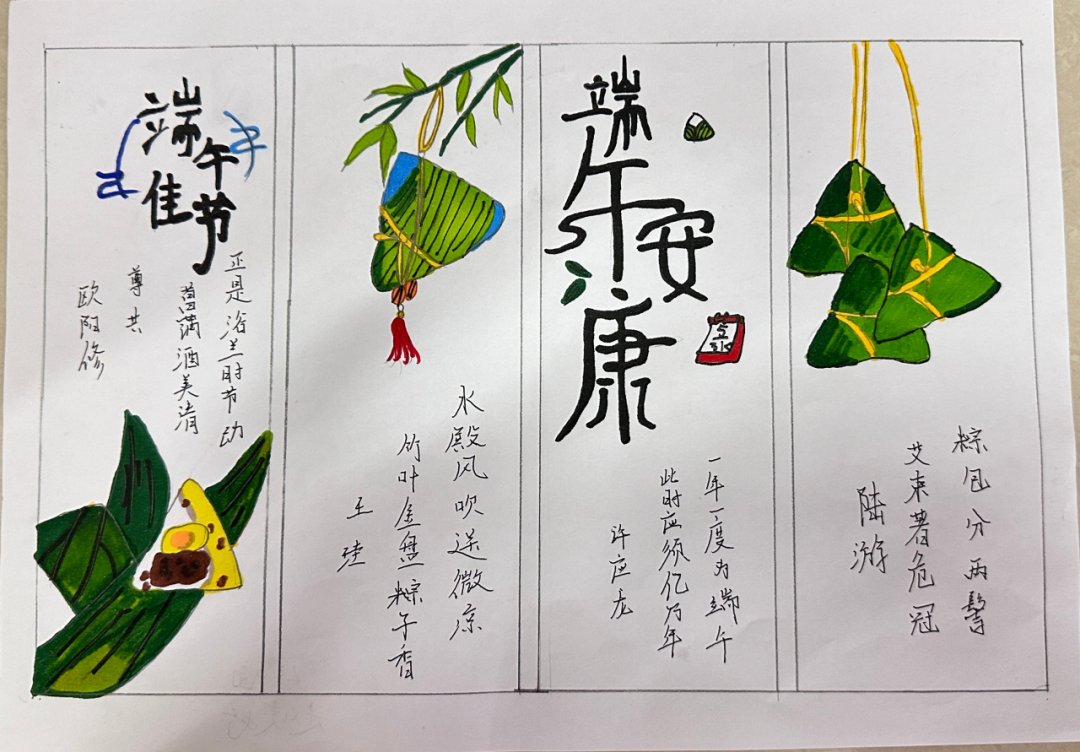 端午
佳节
正是浴兰时节动
菖蒲酒美清
尊共
欧阳修
水殿风吹送微凉
竹叶金盘粽子香
王珪
端午
安康
一年一度为端午
此时应须亿万年
许应龙
粽包分两髻
艾束著危冠
陆游